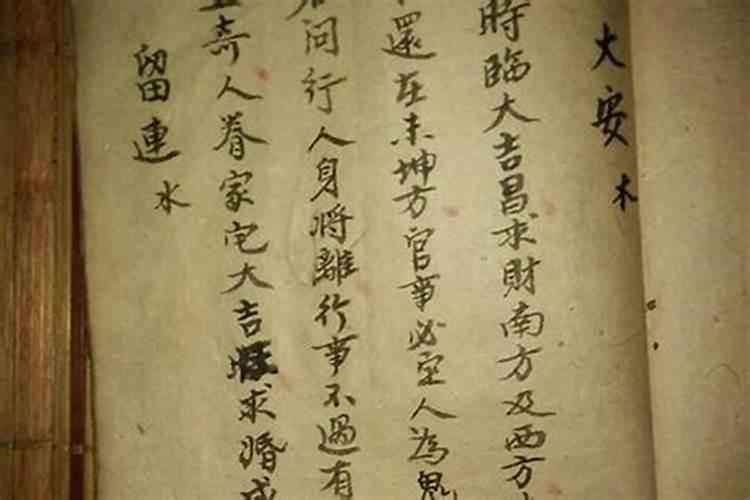 大安 木
時臨大吉昌求財南方及西方
還在未坤方官事必空人為鬼
問行人身将離行事不過有
奇人眷家宅大吉求婚成
留連 水